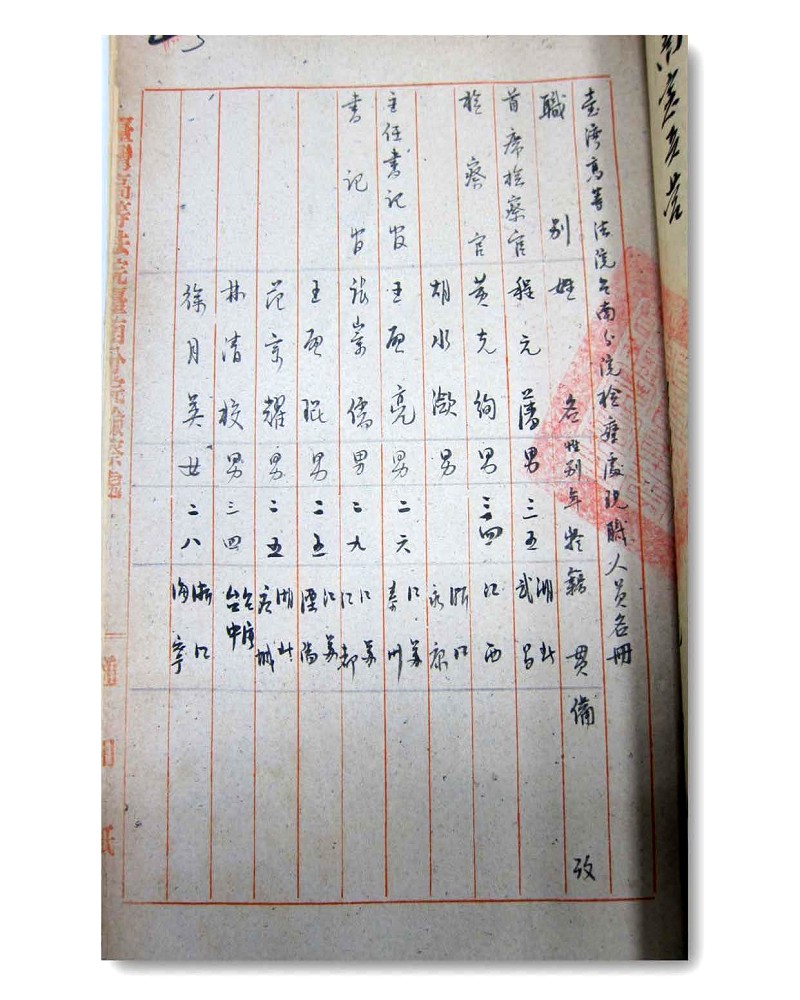 臺灣高等法院台南分院檢察處現職人員名冊
職別 姓名 性別 年齡 籍貫 備攷
首席檢察官 程元藩 男 三五 湖北武昌
檢察官 黃克絢 男 三四 江西
胡水 男 浙江永康
主任書記官 王 亮 男 二六 江蘇泰州
書記官 張崇儒 男 二九 江蘇江都
王 琨 男 二五 江蘇溧陽
范京耀 男 二五 湖北
林清校 男 三四 台灣台中
徐月英 女 二八 浙江海寧
臺灣高等法院臺南分院檢察處
通用紙